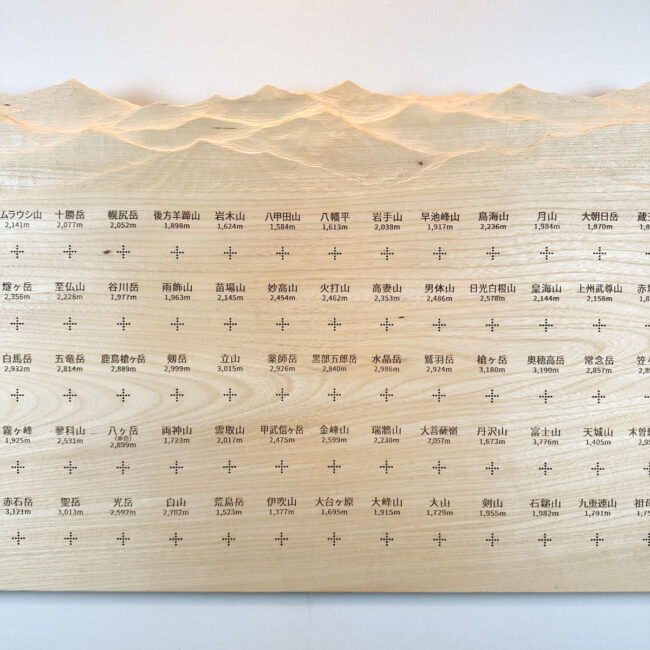 ムラウシ山 十勝岳 幌尻岳 後方羊蹄山 岩木山 八甲田山 八幡平 岩手山 早池峰山 鳥海山 月山 大朝日岳 蔵王
2,141m 2,077m 2,052m 1,898m 1,624m 1,584m 1,613m 2,038m 1,917m 2,236m 1,984m 1,870m
燧ヶ岳 至仏山 谷川岳 雨飾山 苗場山 妙高山 火打山 高妻山 男体山 日光白根山 皇海山 上州武尊山 赤城
2,356m 2,228m 1,977m 1,963m 2,145m 2,454m 2,462m 2,353m 2,486m 2,578m 2,144m 2,158m
白馬岳 五竜岳 鹿島槍ヶ岳 剱岳 立山 薬師岳 黒部五郎岳 水晶岳 鷲羽岳 槍ヶ岳 奥穂高岳 常念岳 笠ヶ
2,932m 2,814m 2,889m 2,999m 3,015m 2,926m 2,840m 2,986m 2,924m 3,180m 3,190m 2,857m
霧ヶ峰 蓼科山 八ヶ岳 両神山 雲取山 甲武信ヶ岳 金峰山 瑞牆山 大菩薩嶺 丹沢山 富士山 天城山 木曽駒
(赤岳)
1,925m 2,531m 2,899m 1,723m 2,017m 2,475m 2,599m 2,230m 2,057m 1,673m 3,776m 1,405m
赤石岳 聖岳 光岳 白山 荒島岳 伊吹山 大台ヶ原 大峰山 大山 剣山 石鎚山 九重連山 祖母
3,121m 3,013m 2,592m 2,702m 1,523m 1,377m 1,695m 1,915m 1,729m 1,955m 1,982m 1,791m